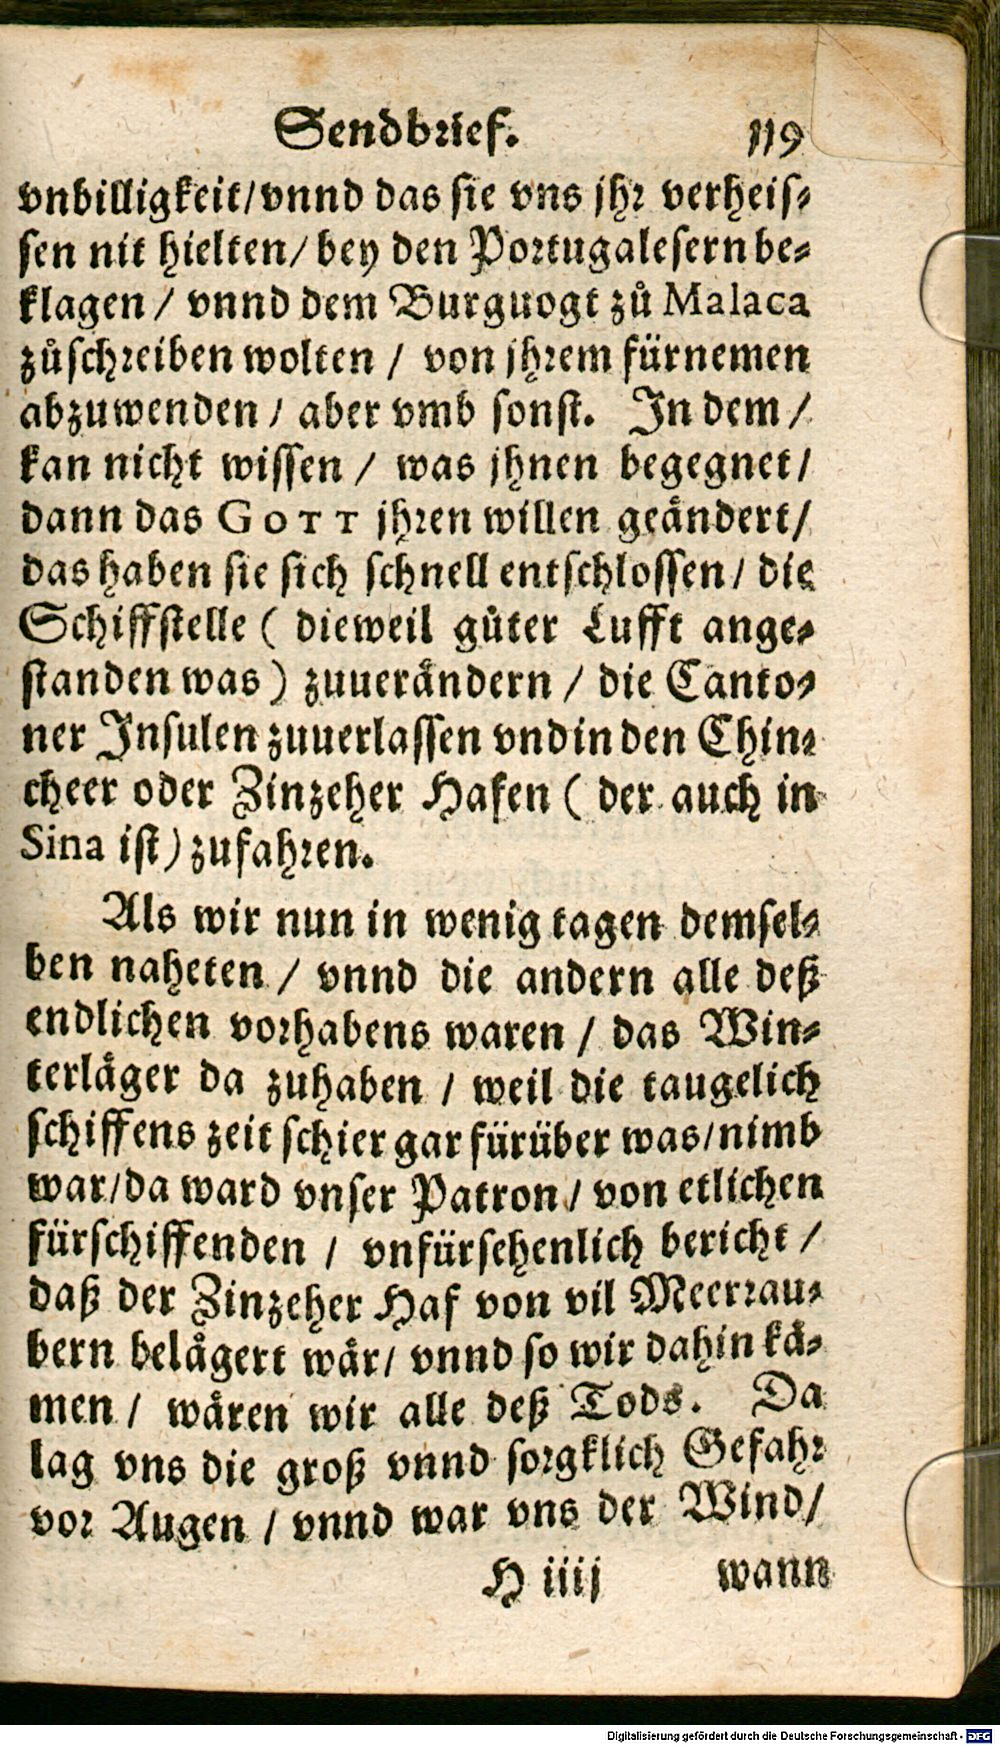 Sendbrief. 119
vnbilligkeit/vnnd das sie vns jhr verheis⸗
sen nit hielten/ bey den Portugalesern be⸗
klagen / vnnd dem Burguogt zů Malaca
zůschreiben wolten / von jhrem fürnemen
abzuwenden / aber vmb sonst. In dem /
kan nicht wissen / was jhnen begegnet /
dann das GOTT jhren willen geändert /
das haben sie sich schnell entschlossen / die
Schiffstelle ( dieweil gůter Lufft ange⸗
standen was ) zuuerändern / die Canto⸗
ner Insulen zuuerlassen vnd in den Chin⸗
cheer oder Zinzeher Hafen ( der auch in
Sina ist ) zufahren.
Als wir nun in wenig tagen demsel⸗
ben naheten / vnnd die andern alle deß
endlichen vorhabens waren / das Win⸗
terläger da zuhaben / weil die taugelich
schiffens zeit schier gar fürüber was/nimb
war/da ward vnser Patron / von etlichen
fürschiffenden / vnfürsehenlich bericht /
daß der Zinzeher Haf von vil Meerrau⸗
bern belägert wär / vnnd so wir dahin kä⸗
men / wären wir alle deß Tods. Da
lag vns die groß vnnd sorgklich Gefahr
vor Augen / vnnd war vns der Wind/
H iiij wann
Digitalisierung gefördert durch die Deutsche Forschungsgemeinschaft - DFG